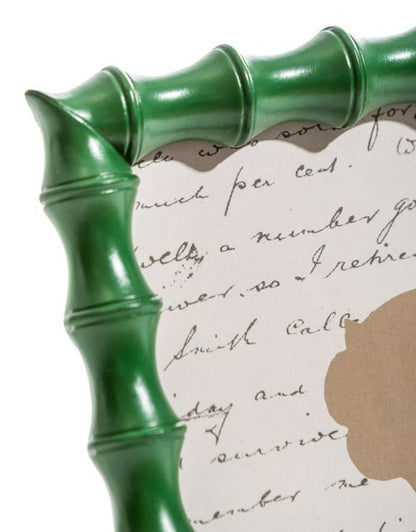 sold for
much per cent. (W
Wells a number go
wer. so I retire
Smith Calle
day and
survive
member me